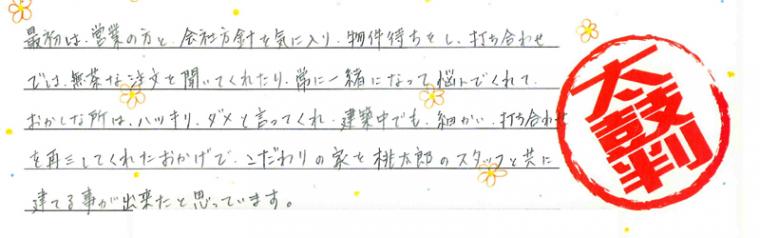 最初は、営業の方と、会社方針を気に入り、物件待ちをし、打ち合わせ
では、無茶な注文を聞いてくれたり、常に一緒になって悩んでくれて、
おかしな所は、ハッキリ、ダメと言ってくれ、建築中でも、細かい、打ち合わせ
を再三してくれたおかげで、こだわりの家を桃太郎のスタッフと共に
建てる事が出来たと思っています。
太鼓判